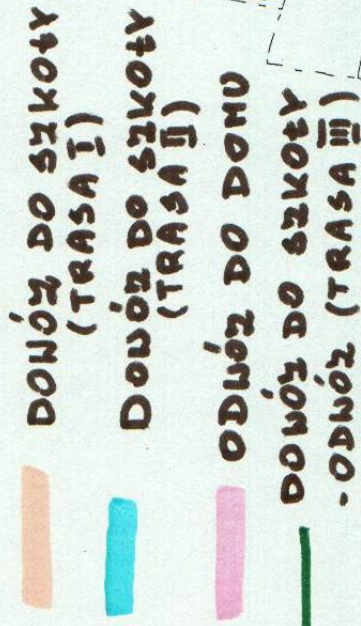 DOWÓZ DO SZKOŁY
(TRASA I)
DOWÓZ DO SZKOŁY
(TRASA II)
ODWÓZ DO DOMU
DOWÓZ DO SZKOŁY
-ODWÓZ (TRASA III)